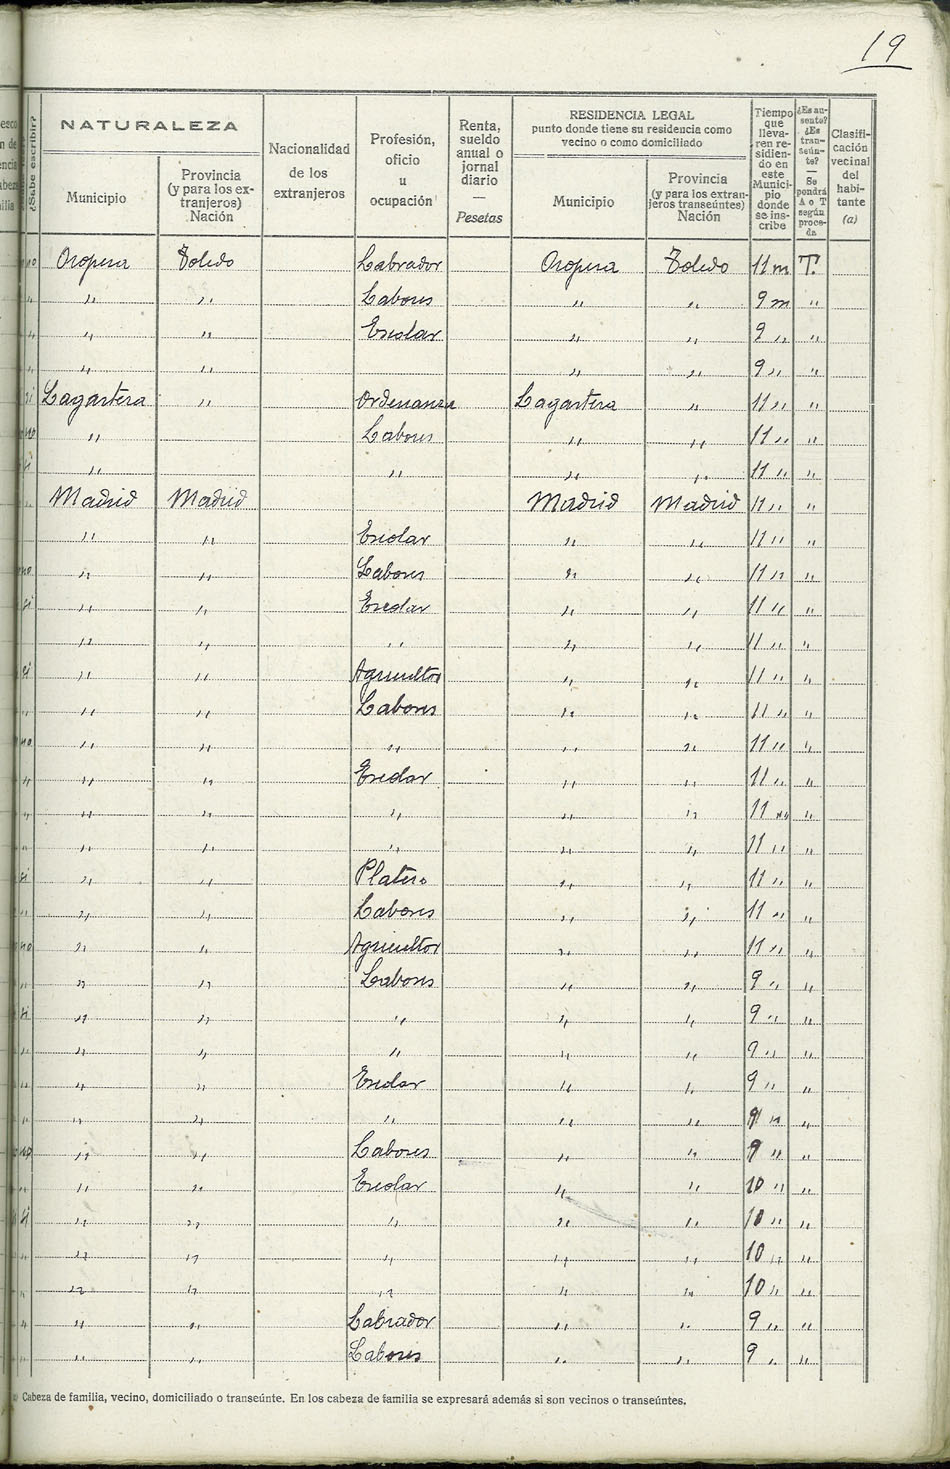 19
¿Sabe escribir?
NATURALEZA
Municipio
Provincia
(y para los ex-
tranjeros)
Nación
Nacionalidad
de los
extranjeros
Profesión,
oficio
u
ocupación
Renta,
sueldo
anual o
jornal
diario
—
Pesetas
RESIDENCIA LEGAL
punto donde tiene su residencia como
vecino o como domiciliado
Municipio
Provincia
(y para los extran-
jeros transeúntes)
Nación
Tiempo
que
lleva-
ren re-
sidien-
do en
este
Munici-
pio
donde
se ins-
cribe
¿Es au-
sente?
¿Es
tran-
seún-
te?
—
Se
pondrá
A o T
según
proce-
da
Clasifi-
cación
vecinal
del
habi-
tante
(a)
no Oropesa Toledo Labrador Oropesa Toledo 11 m T.
" " " Labores " " 9 m "
" " " Escolar " " 9 " "
" " " " " 9 " "
si Lagartera " Ordenanza Lagartera " 11 " "
no " Labores " " 11 " "
si " " " " 11 " "
" Madrid Madrid Madrid Madrid 11 " "
" " Escolar " " 11 " "
no " " Labores " " 11 " "
si " " Escolar " " 11 " "
" " " " " 11 " "
si " " Agricultor " " 11 " "
" " " Labores " " 11 " "
no " " " " " 11 " "
" " " Escolar " " 11 " "
" " " " " " 11 " "
" " " " " " 11 " "
si " " Platero " " 11 " "
" " " Labores " " 11 " "
no " " Agricultor " " 11 " "
" " " Labores " " 9 " "
si " " " " " 9 " "
" " " " " " 9 " "
" " " Escolar " " 9 " "
" " " " " " 9 " "
no " " Labores " " 9 " "
" " " Escolar " " 10 " "
si " " " " " 10 " "
" " " " " " 10 " "
" " " " " " 10 " "
" " " Labrador " " 9 " "
" " " Labores " " 9 " "
Cabeza de familia, vecino, domiciliado o transeúnte. En los cabeza de familia se expresará además si son vecinos o transeúntes.